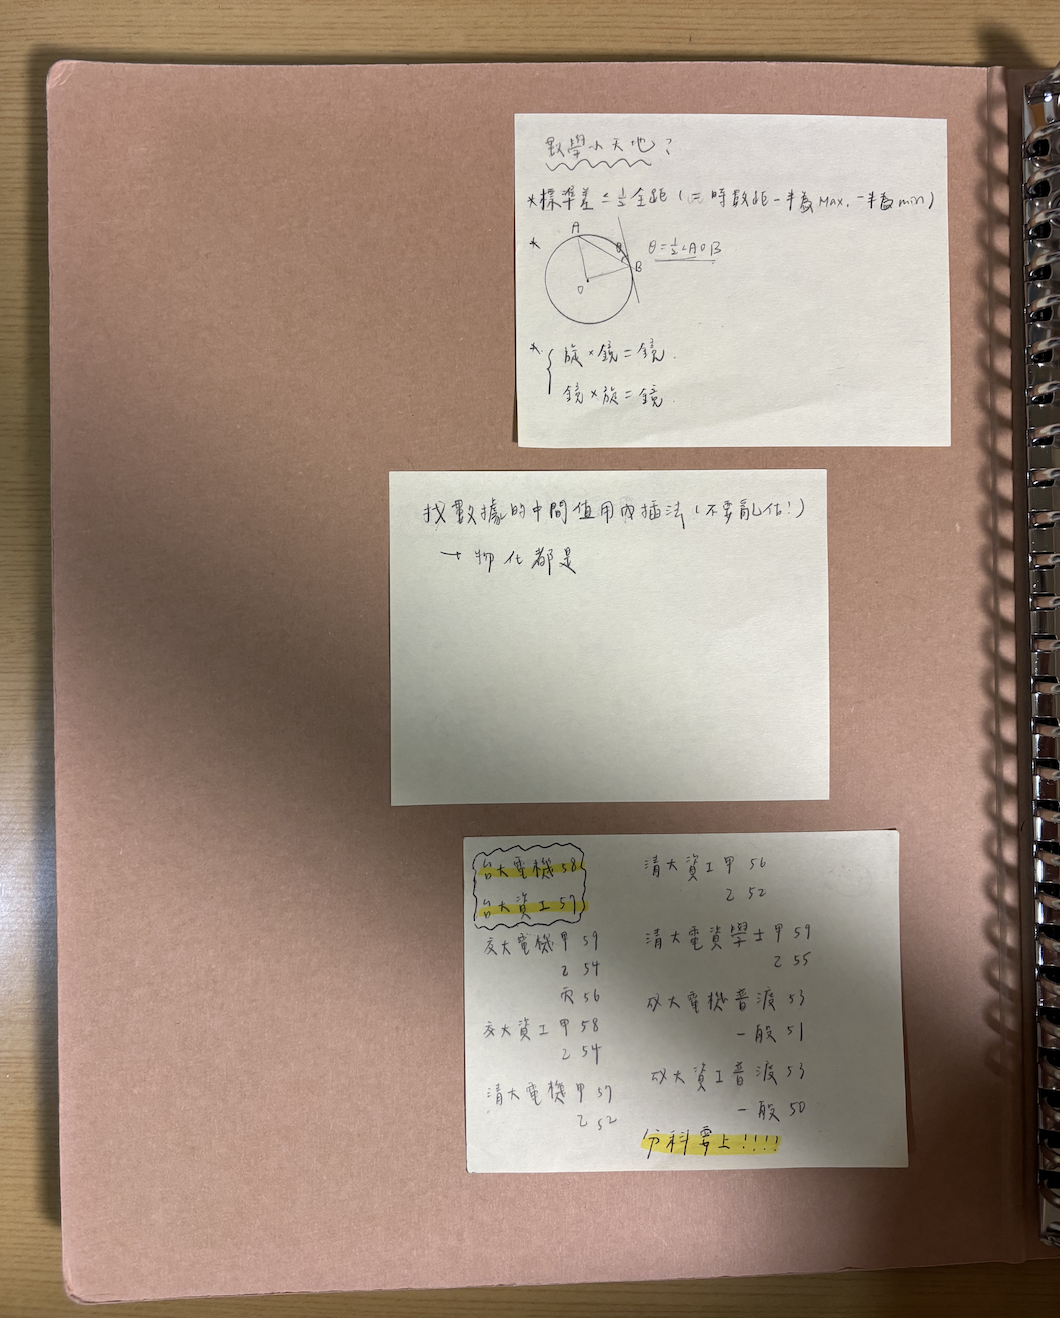 數學小天地?
*標準差≤½全距(〝=〞時數距一半為MAX,一半為min)
A
*
θ
B
θ=½∠AOB
O
*{旋×鏡=鏡.
鏡×旋=鏡.
找數據的中間值用內插法(不要亂估!)
→物化都是
台大電機58
台大資工57
交大電機甲59
乙54
丙56
交大資工甲58
乙54
清大電機甲57
乙52
清大資工甲56
乙52
清大電資學士甲59
乙55
成大電機普渡53
一般51
成大資工普渡53
一般50
分科要上!!!!